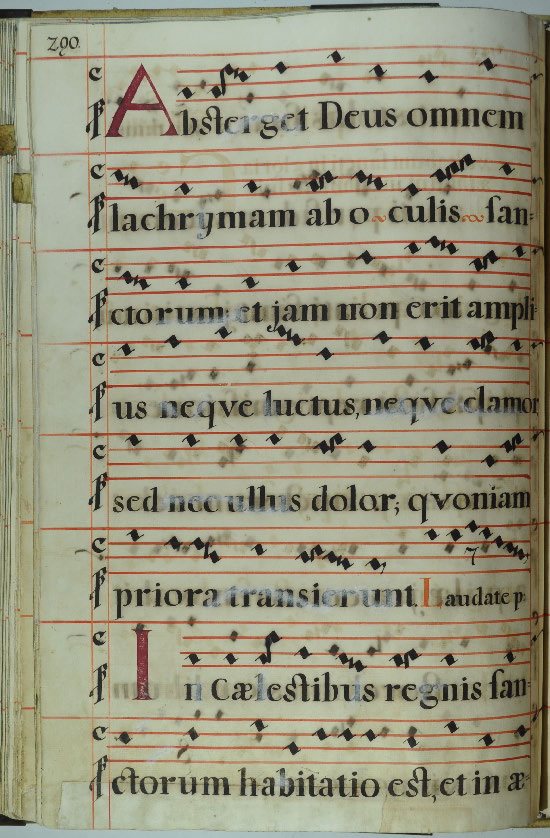 290.
Absterget Deus omnem
lachrymam ab oculis san-
ctorum et jam non erit ampli-
us neqve luctus, neqve clamor
sed nec ullus dolor; qvoniam
priora transierunt. Laudate p.
In Cælestibus regnis san-
ctorum habitatio est, et in æ-